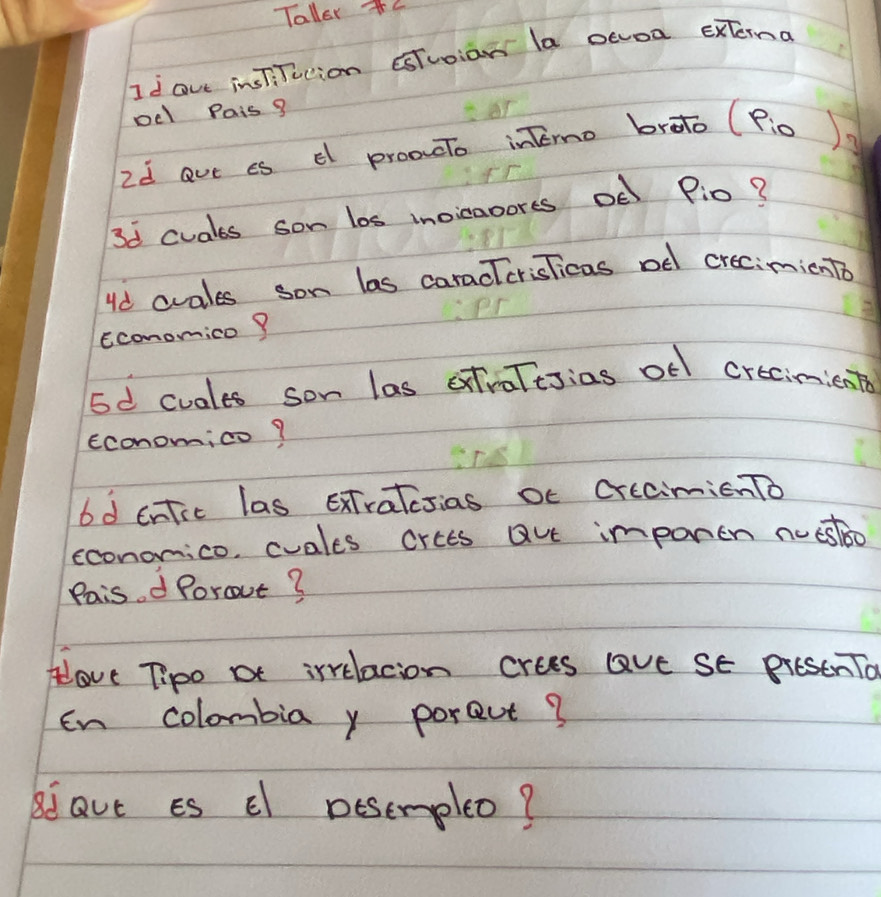 Taller #2
1¿ Que insTiTucion esTudian la deuda exTerna
del Pais?
2¿ Que es el producTo inTerno bruTo (Pio)?
3¿ cuales son los indicadores del Pio?
4¿ cuales son las caracTerisTicas del crecimienTo
economico?
5¿ cuales son las exTraTejias del crecimienTo
economico?
6¿ enTre las exTraTejias de crecimienTo
economico. cuales crees Que imponen nuesTro
Pais. ¿ Porque?
7¿ Que Tipo de irrelacion crees Que se presenTa
en colombia y porQue?
8¿ Que es el Desempleo?